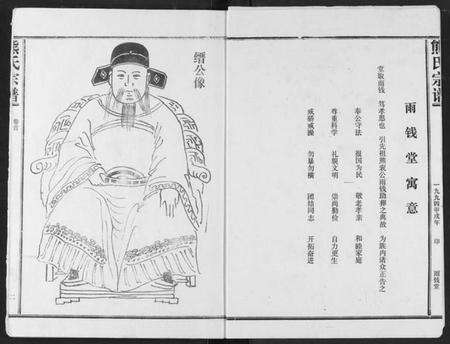 熊氏宗谱
雨钱堂寓意
堂取雨钱 笃孝思也 引先祖熊衮公雨钱助葬之典故 为族内诸众正告之
奉公守法 报国为民 敬老孝亲 和睦家庭
尊重科学 礼貌文明 崇尚勤俭 自力更生
戒赌戒操 勿暴勿横 团结同志 开拓奋进
一九九四年戌年 印 雨钱堂
缙公像
熊氏宗谱
卷首